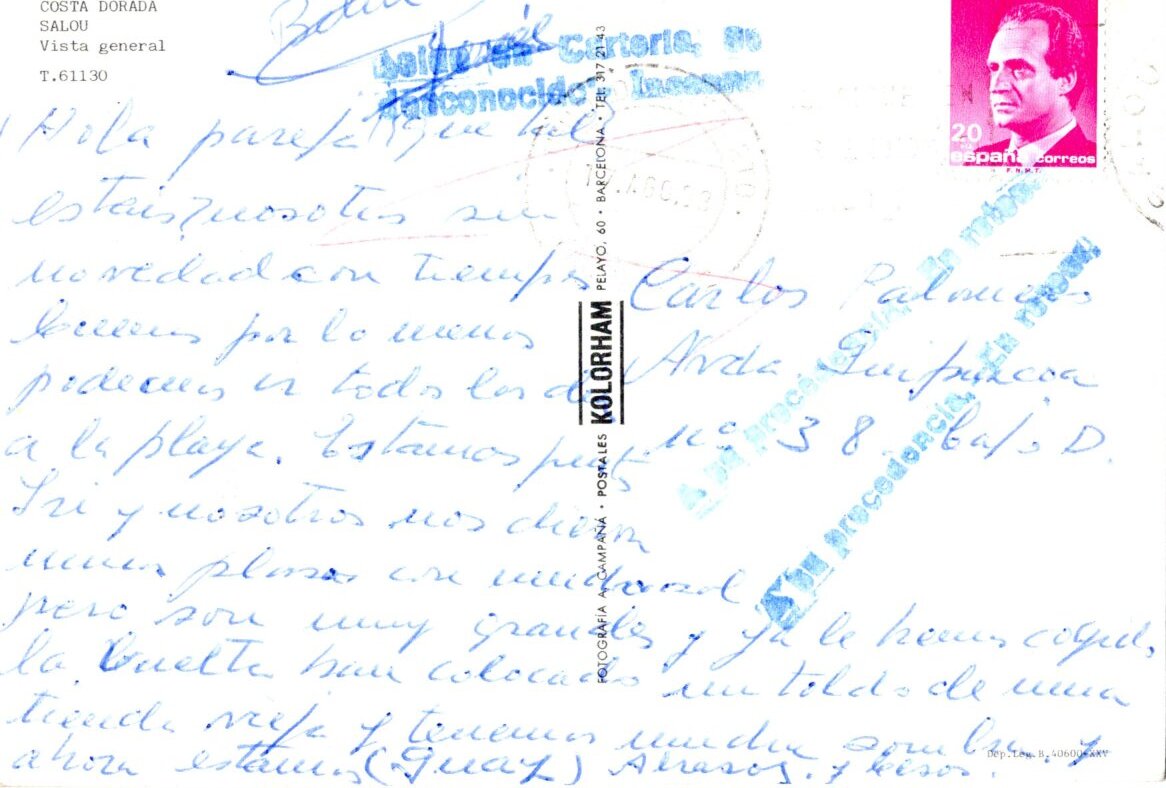 COSTA DORADA
SALOU
Vista general
T.61130
Salida en Cartería, de
desconocido
¡Hola pareja! ¿que tal
estais? nosotros sin
novedad con tiempo
bueno por lo menos
podemos ir todos los días
a la playa. Estamos juntos
Iri y nosotros nos dieron
unas plazas con mucho sol,
pero son muy grandes y ya le hemos cogido
la vuelta han colocado un toldo de una
tienda vieja y tenemos mucha sombra y
ahora estamos (Guay) Abrazos y besos.
20
españa correos
F.N.M.T.
Carlos Palomares
Avda. Guipuzcoa
nº 38. bajo D.
A su procedencia, se retorna
A su procedencia, se retorna
FOTOGRAFÍA A. CAMPAÑÁ • POSTALES KOLORHAM PELAYO, 60 • BARCELONA • TEL. 317 21 43
Dep. Leg. B. 40600-XXV